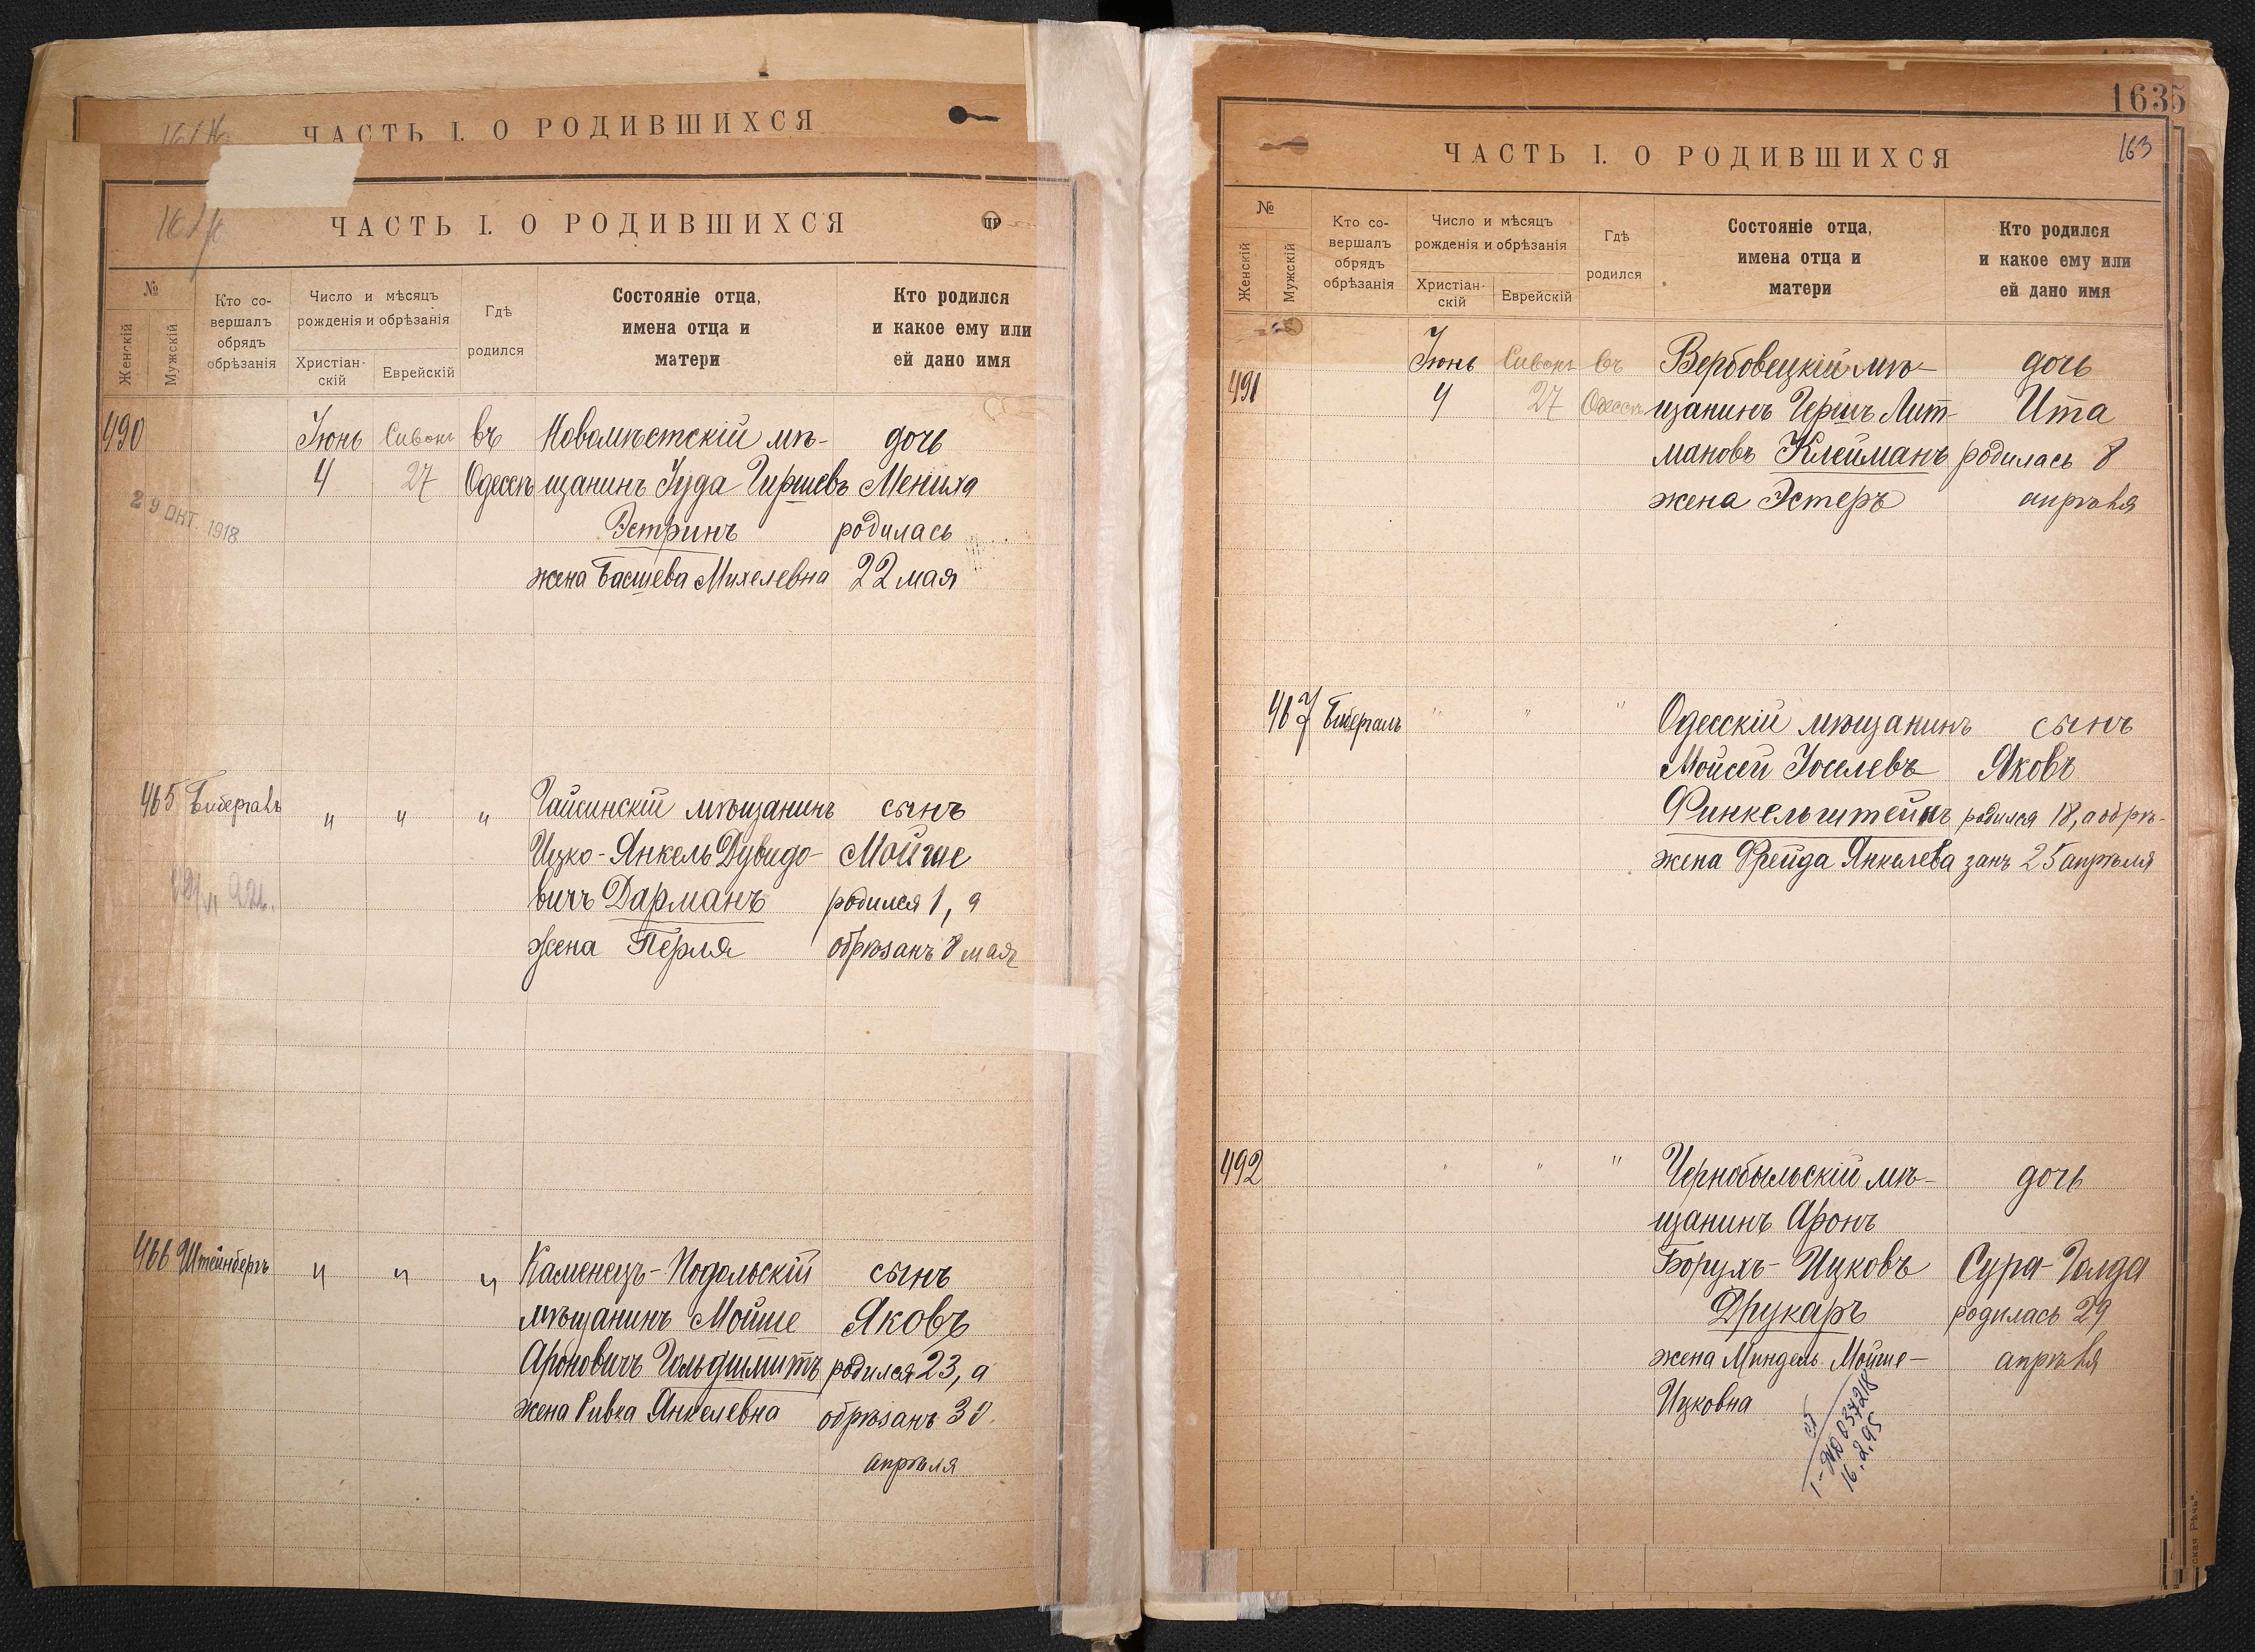 ЧАСТЬ I. О РОДИВШИХСЯ
ЧАСТЬ I. О РОДИВШИХСЯ
ПР
№
Женскій
Мужскій
Кто со-
вершалъ
обрядъ
обрѣзанія
Число и мѣсяцъ
рожденія и обрѣзанія
Христіан-
скій
Еврейскій
Гдѣ
родился
Состояніе отца,
имена отца и
матери
Кто родился
и какое ему или
ей дано имя
490 Іюнь Сивонъ въ Новомѣстскій мѣ- дочь
4 27 Одессѣ щанинъ Іуда Гиршевъ Мениха
29 ОКТ. 1918
Эстринъ родилась
жена Басшева Михелевна 22 мая
465 Бибергалъ " " " Гайсинскій мѣщанинъ сынъ
Ицко-Янкель Дувидо- Мойше
вичъ Дарманъ родился 1, а
жена Перля обрѣзанъ 8 мая
466 Штейнбергъ " " " Каменецъ-Подольскій сынъ
мѣщанинъ Мойше Яковъ
Ароновичъ Гольдшмитъ родился 23, а
жена Ривка Янкелевна обрѣзанъ 30
апрѣля
1635
163
ЧАСТЬ I. О РОДИВШИХСЯ
№
Женскій
Мужскій
Кто со-
вершалъ
обрядъ
обрѣзанія
Число и мѣсяцъ
рожденія и обрѣзанія
Христіан-
скій
Еврейскій
Гдѣ
родился
Состояніе отца,
имена отца и
матери
Кто родился
и какое ему или
ей дано имя
Іюнь Сивонъ въ Вербовецкій мѣ- дочь
491 4 27 Одессѣ щанинъ Гершъ Лит- Ита
мановъ Клейманъ родилась 8
жена Эстеръ апрѣля
467 Бибергалъ " " " Одесскій мѣщанинъ сынъ
Мойсей Іоселевъ Яковъ
Финкельштейнъ родился 18, а обрѣ-
жена Фрейда Янкелева занъ 25 апрѣля
492 " " " Чернобыльскій мѣ- дочь
щанинъ Аронъ
Борухъ-Ицковъ Сура-Голда
Друкаръ родилась 29
жена Миндель Мойше- апрѣля
Ицковна
I-ЖД 037218
16.2.95